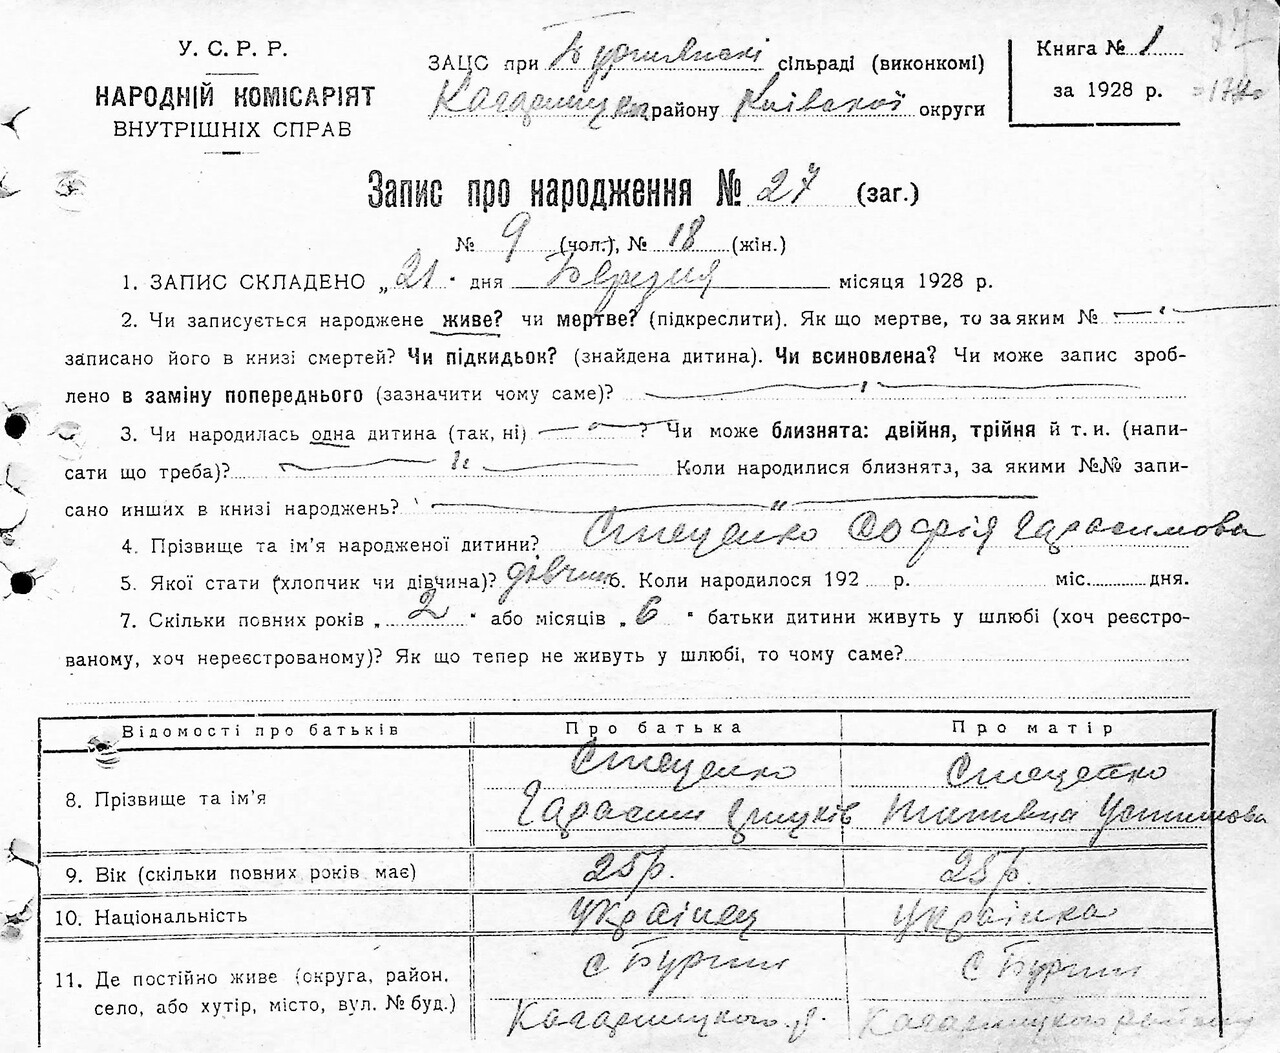 У. С. Р. Р.
НАРОДНІЙ КОМІСАРІЯТ
ВНУТРІШНІХ СПРАВ
ЗАЦС при сільраді (виконкомі)
району Київської округи
Книга № 1
за 1928 р.
Запис про народження № 27 (заг.)
№ 9 (чол.), № 18 (жін.)
1. ЗАПИС СКЛАДЕНО „21" дня Березня місяця 1928 р.
2. Чи записується народжене живе? чи мертве? (підкреслити). Як що мертве, то за яким №
записано його в книзі смертей? Чи підкидьок? (знайдена дитина). Чи всиновлена? Чи може запис зроб-
лено в заміну попереднього (зазначити чому саме)?
3. Чи народилась одна дитина (так, ні) ? Чи може близнята: двійня, трійня й т. и. (напи-
сати що треба)? Коли народилися близнята, за якими №№ запи-
сано инших в книзі народжень?
4. Прізвище та ім'я народженої дитини? Стеценко Софія Гарасимова
5. Якої стати (хлопчик чи дівчина)? дівчин 6. Коли народилося 192 р. міс. дня.
7. Скільки повних років „2" або місяців „6" батьки дитини живуть у шлюбі (хоч реєстро-
ваному, хоч нереєстрованому)? Як що тепер не живуть у шлюбі, то чому саме?
Відомості про батьків Про батька Про матір
Стеценко Стеценко
8. Прізвище та ім'я Гарасим Грицків Тетяна Устимова
9. Вік (скільки повних років має) 25 р. 25 р.
10. Національність Українец Українка
11. Де постійно живе (округа, район, с Бурти с Бурти
село, або хутір, місто, вул. № буд.) Кагарлицкого р. Кагарлицкого району